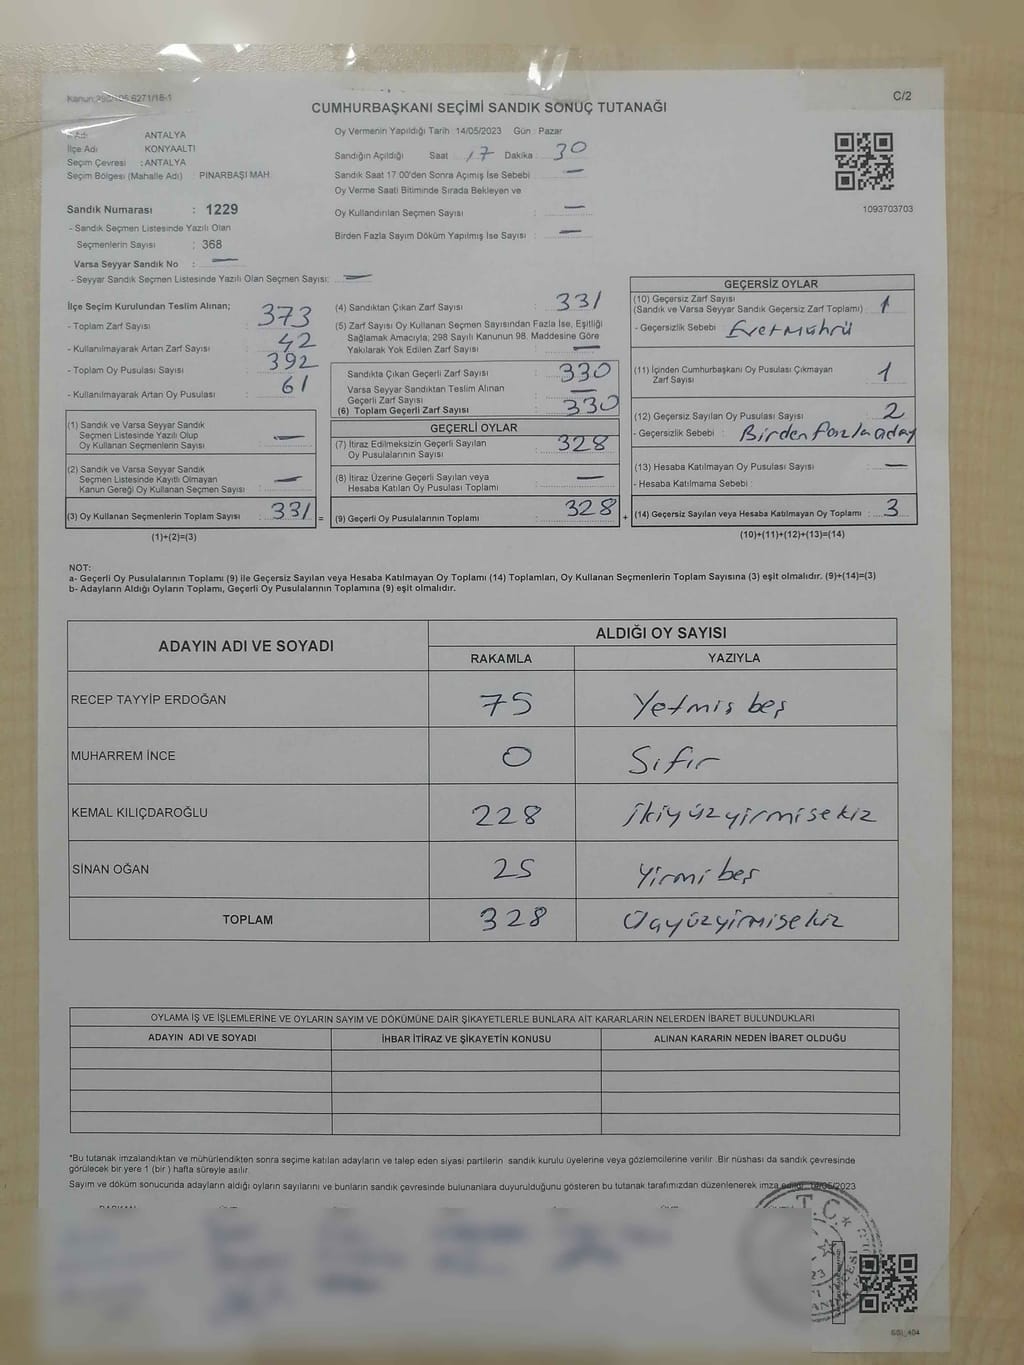 C/2
CUMHURBAŞKANI SEÇİMİ SANDIK SONUÇ TUTANAĞI
Adı ANTALYA
İlçe Adı KONYAALTI
Seçim Çevresi : ANTALYA
Seçim Bölgesi (Mahalle Adı) : PINARBAŞI MAH.
Sandık Numarası : 1229
- Sandık Seçmen Listesinde Yazılı Olan
Seçmenlerin Sayısı : 368
Varsa Seyyar Sandık No : —
- Seyyar Sandık Seçmen Listesinde Yazılı Olan Seçmen Sayısı: —
Oy Vermenin Yapıldığı Tarih 14/05/2023 Gün : Pazar
Sandığın Açıldığı Saat 17 Dakika : 30
Sandık Saat 17:00'den Sonra Açımış İse Sebebi : —
Oy Verme Saati Bitiminde Sırada Bekleyen ve
Oy Kullandırılan Seçmen Sayısı : —
Birden Fazla Sayım Döküm Yapılmış İse Sayısı : —
1093703703
İlçe Seçim Kurulundan Teslim Alınan;
- Toplam Zarf Sayısı : 373
- Kullanılmayarak Artan Zarf Sayısı : 42
- Toplam Oy Pusulası Sayısı : 392
- Kullanılmayarak Artan Oy Pusulası : 61
(1) Sandık ve Varsa Seyyar Sandık
Seçmen Listesinde Yazılı Olup
Oy Kullanan Seçmenlerin Sayısı : —
(2) Sandık ve Varsa Seyyar Sandık
Seçmen Listesinde Kayıtlı Olmayan
Kanun Gereği Oy Kullanan Seçmen Sayısı : —
(3) Oy Kullanan Seçmenlerin Toplam Sayısı : 331 =
(1)+(2)=(3)
(4) Sandıktan Çıkan Zarf Sayısı : 331
(5) Zarf Sayısı Oy Kullanan Seçmen Sayısından Fazla İse, Eşitliği
Sağlamak Amacıyla; 298 Sayılı Kanunun 98. Maddesine Göre
Yakılarak Yok Edilen Zarf Sayısı : —
Sandıkta Çıkan Geçerli Zarf Sayısı : 330
Varsa Seyyar Sandıktan Teslim Alınan
Geçerli Zarf Sayısı : —
(6) Toplam Geçerli Zarf Sayısı : 330
GEÇERLİ OYLAR
(7) İtiraz Edilmeksizin Geçerli Sayılan
Oy Pusulalarının Sayısı : 328
(8) İtiraz Üzerine Geçerli Sayılan veya
Hesaba Katılan Oy Pusulası Toplamı : —
(9) Geçerli Oy Pusulalarının Toplamı : 328 +
GEÇERSİZ OYLAR
(10) Geçersiz Zarf Sayısı
(Sandık ve Varsa Seyyar Sandık Geçersiz Zarf Toplamı) : 1
- Geçersizlik Sebebi : Evet mührü
(11) İçinden Cumhurbaşkanı Oy Pusulası Çıkmayan
Zarf Sayısı : 1
(12) Geçersiz Sayılan Oy Pusulası Sayısı : 2
- Geçersizlik Sebebi : Birden fazla aday
(13) Hesaba Katılmayan Oy Pusulası Sayısı : —
- Hesaba Katılmama Sebebi :
(14) Geçersiz Sayılan veya Hesaba Katılmayan Oy Toplamı : 3
(10)+(11)+(12)+(13)=(14)
NOT:
a- Geçerli Oy Pusulalarının Toplamı (9) ile Geçersiz Sayılan veya Hesaba Katılmayan Oy Toplamı (14) Toplamları, Oy Kullanan Seçmenlerin Toplam Sayısına (3) eşit olmalıdır. (9)+(14)=(3)
b- Adayların Aldığı Oyların Toplamı, Geçerli Oy Pusulalarının Toplamına (9) eşit olmalıdır.
ADAYIN ADI VE SOYADI ALDIĞI OY SAYISI
RAKAMLA YAZIYLA
RECEP TAYYİP ERDOĞAN 75 Yetmiş beş
MUHARREM İNCE 0 Sıfır
KEMAL KILIÇDAROĞLU 228 İkiyüzyirmisekiz
SİNAN OĞAN 25 Yirmi beş
TOPLAM 328 Üçyüzyirmisekiz
OYLAMA İŞ VE İŞLEMLERİNE VE OYLARIN SAYIM VE DÖKÜMÜNE DAİR ŞİKAYETLERLE BUNLARA AİT KARARLARIN NELERDEN İBARET BULUNDUKLARI
ADAYIN ADI VE SOYADI İHBAR İTİRAZ VE ŞİKAYETİN KONUSU ALINAN KARARIN NEDEN İBARET OLDUĞU
*Bu tutanak imzalandıktan ve mühürlendikten sonra seçime katılan adayların ve talep eden siyasi partilerin sandık kurulu üyelerine veya gözlemcilerine verilir. Bir nüshası da sandık çevresinde
görülecek bir yere 1 (bir ) hafta süreyle asılır.
Sayım ve döküm sonucunda adayların aldığı oyların sayılarını ve bunların sandık çevresinde bulunanlara duyurulduğunu gösteren bu tutanak tarafımızdan düzenlenerek imza edildi.
T.C.